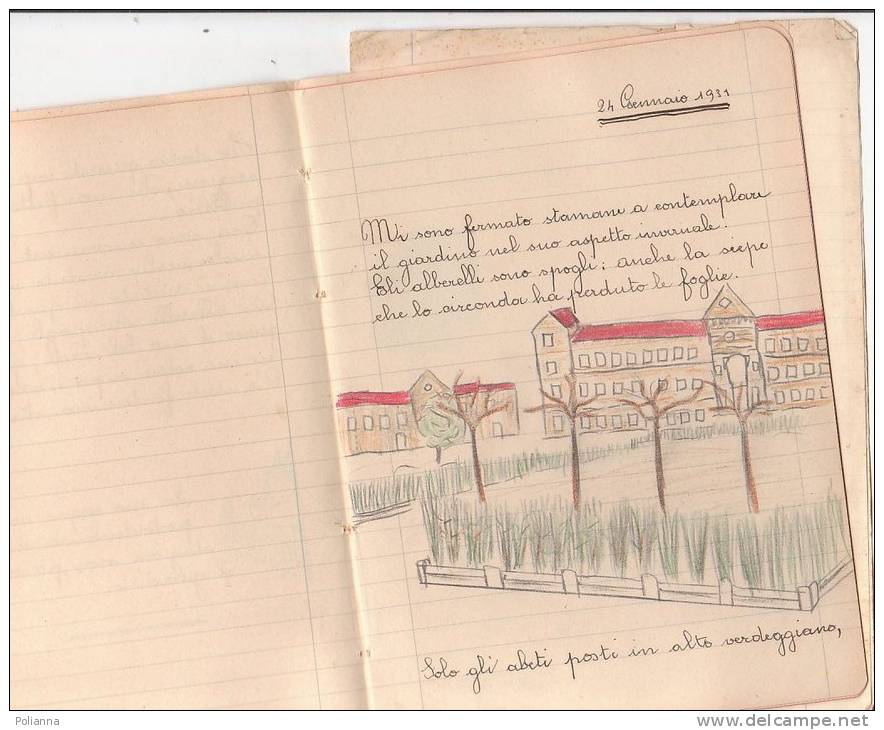 24 Gennaio 1931
Mi sono fermato stamane a contemplare
il giardino nel suo aspetto invernale.
Gli alberelli sono spogli; anche la siepe
che lo circonda ha perduto le foglie.
Solo gli abeti posti in alto verdeggiano,
Polianna
www.delcampe.net